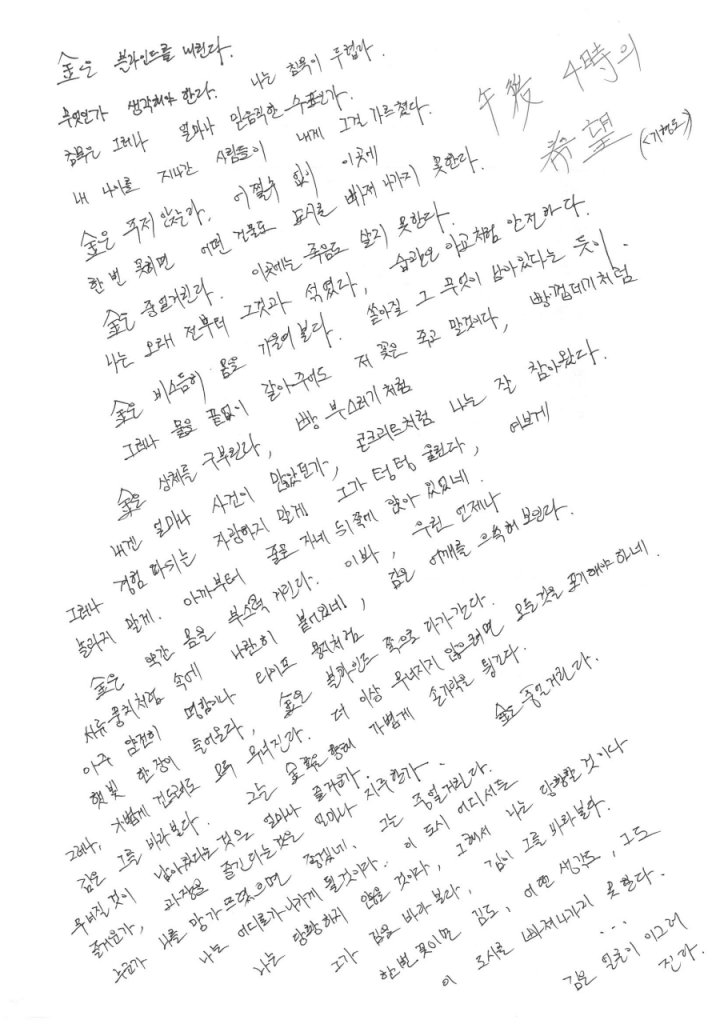 午後 4時의
希望
(<기형도>)
金은 블라인드를 내린다.
무엇인가 생각해야 한다. 나는 침묵이 두렵다.
침묵은 그러나 얼마나 믿음직한 수표인가.
내 나이를 지나간 사람들이 내게 그걸 가르쳤다.
金은 주저앉는다, 어쩔수 없이 이곳에
한 번 꽂히면 어떤 건물도 도시를 빠져나가지 못한다.
金은 중얼거린다. 이곳에는 죽음도 살지 못한다.
나는 오래 전부터 그것과 섞였다, 습관은 아교처럼 안전하다.
金은 비스듬히 몸을 기울여 본다. 쏟아질 그 무엇이 남아있다는 듯이.
그러나 물을 끝없이 갈아주어도 저 꽃은 죽고 말것이다, 빵껍데기처럼
金은 상체를 구부린다, 빵 부스러기처럼
내겐 얼마나 사건이 많았던가, 콘크리트처럼 나는 잘 참아왔다.
그러나 경험 따위는 자랑하지 말게 그가 텅텅 울린다, 여보게
놀라지 말게, 아까부터 줄곧 자네 뒤쪽에 앉아 있었네.
金은 약간 몸을 부스럭 거린다. 이봐, 우린 언제나
서류뭉치처럼 속에 나란히 붙어있네, 김은 어깨를 으쓱해 보인다.
아주 얌전히 명함이나 타이프 용지처럼
햇빛 한 장이 들어온다, 金은 블라인드 쪽으로 다가간다.
그러나, 가볍게 건드려도 모두 무너진다. 더 이상 무너지지 않으려면 모든것을 포기해야 하네.
김은 그를 바라본다. 그는 金 쪽을 향해 가볍게 손가락을 튕긴다.
무너질 것이 남아있다는 것은 얼마나 즐거운가. 金은 중얼거린다.
즐거운가, 과장을 즐긴다는것은 얼마나 지루한가.
누군가 나를 망가뜨렸으면 좋겠네. 그는 중얼거린다.
나는 어디론가 나가게 될것이다. 이 도시 어디서든
나는 당황하지 않을 것이다, 그래서 나는 당황할 것이다
그가 김을 바라본다, 김이 그를 바라본다.
한번 꽂히면 김도, 어떤 생각도, 그도
이 도시를 빠져나가지 못한다.
...
김은 얼굴이 이그러
진다.